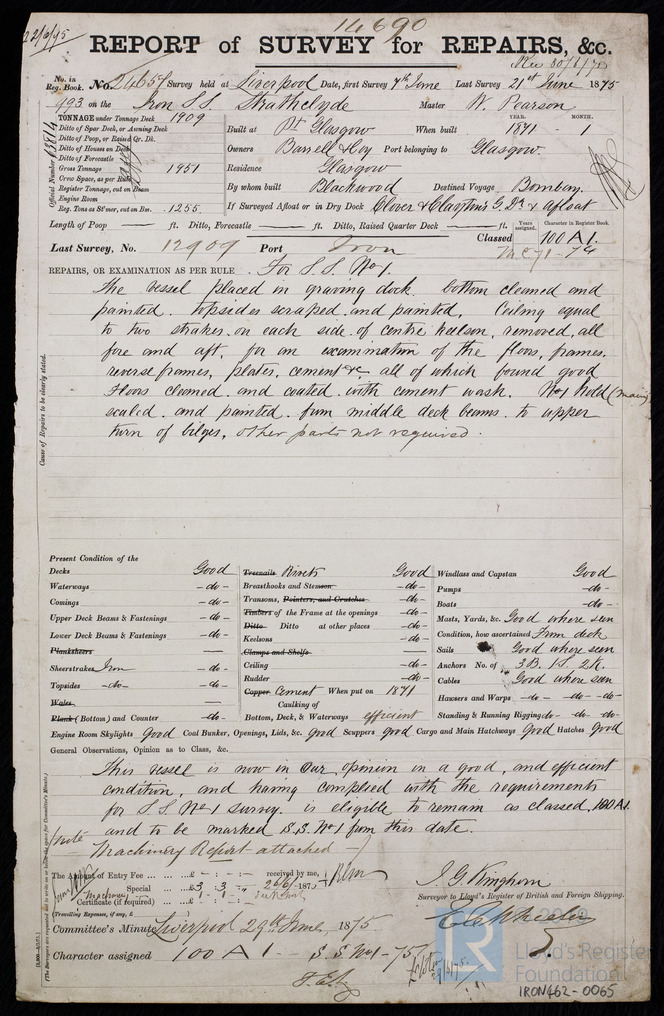 14690
22/6/95
REPORT of SURVEY for REPAIRS, &c.
Rec 30/6/75
No. in Reg. Book. No. 24651 Survey held at Liverpool Date, first Survey 7th June Last Survey 21st June 1875
493 on the Iron S.S. Strathclyde Master W. Pearson
TONNAGE under Tonnage Deck 1909
Ditto of Spar Deck, or Awning Deck
Ditto of Poop, or Raised Qr. Dk.
Ditto of Houses on Deck
Ditto of Forecastle
Gross Tonnage 1951
Crew Space, as per Rule
Register Tonnage, cut on Beam
Engine Room
Reg. Tons as St'mer, cut on Bm. 1255
Official Number
YEAR. MONTH.
Built at Pt Glasgow When built 1871 - 1
Owners Burrell & Coy Port belonging to Glasgow.
Residence Glasgow
By whom built Blackwood Destined Voyage Bombay.
If Surveyed Afloat or in Dry Dock Clover & Clayton's G. Dk & afloat
Length of Poop ft. Ditto, Forecastle ft. Ditto, Raised Quarter Deck ft.
Years assigned. Character in Register Book.
Classed 100 A 1.
Last Survey, No. 12909 Port Iron
REPAIRS, OR EXAMINATION AS PER RULE. For S.S. No 1.
The vessel placed in graving dock. bottom cleaned and
painted. Topsides scraped and painted, Ceiling equal
to two strakes on each side of centre keelson, removed, all
fore and aft, for an examination of the floors, frames,
reverse frames, plates, cement &c. all of which found good
Floors cleaned and coated with cement wash. No 1 hold (main)
scaled and painted from middle deck beams to upper
turn of bilges, other parts not required.
Cause of Repairs to be clearly stated.
Present Condition of the
Decks Good
Waterways - do -
Comings - do -
Upper Deck Beams & Fastenings - do -
Lower Deck Beams & Fastenings - do -
Planksheers
Sheerstrakes Iron - do -
Topsides - do - - do -
Wales
Plank (Bottom) and Counter - do -
Treenails Rivets Good
Breasthooks and Stemson - do -
Transoms, Pointers, and Crutches - do -
Timbers of the Frame at the openings - do -
Ditto Ditto at other places - do -
Keelsons - do -
Clamps and Shelfs
Ceiling - do -
Rudder - do -
Copper Cement When put on 1871
Caulking of
Bottom, Deck, & Waterways efficient
Windlass and Capstan Good
Pumps - do -
Boats - do -
Masts, Yards, &c. Good where seen
Condition, how ascertained From deck
Sails Good where seen
Anchors No. of 3 B. 1 S. 2 K.
Cables Good where seen
Hawsers and Warps - do - - do - - do -
Standing & Running Rigging do - do - do -
Engine Room Skylights Good Coal Bunker, Openings, Lids, &c. good Scuppers good Cargo and Main Hatchways Good Hatches Good
General Observations, Opinion as to Class, &c.
This vessel is now in our opinion in a good, and efficient
condition, and having complied with the requirements
for S.S. No 1 survey. is eligible to remain as classed. 100 A1.
and to be marked S.S. No 1 from this date.
Note
Machinery Report attached
The Amount of Entry Fee ... £ - : - : - received by me,
Special ... £3 : 3 : - 26/6/1875
Certificate (if required) ... 1 : 1 : -
(Travelling Expenses, if any, £
J. G. Kinghorn
Surveyor to Lloyd's Register of British and Foreign Shipping.
Committee's Minute Liverpool 29th June, 1875
Character assigned 100 A 1 - S.S. No 1 - 75
LR
Lloyd's Register
Foundation
IRON462-0065